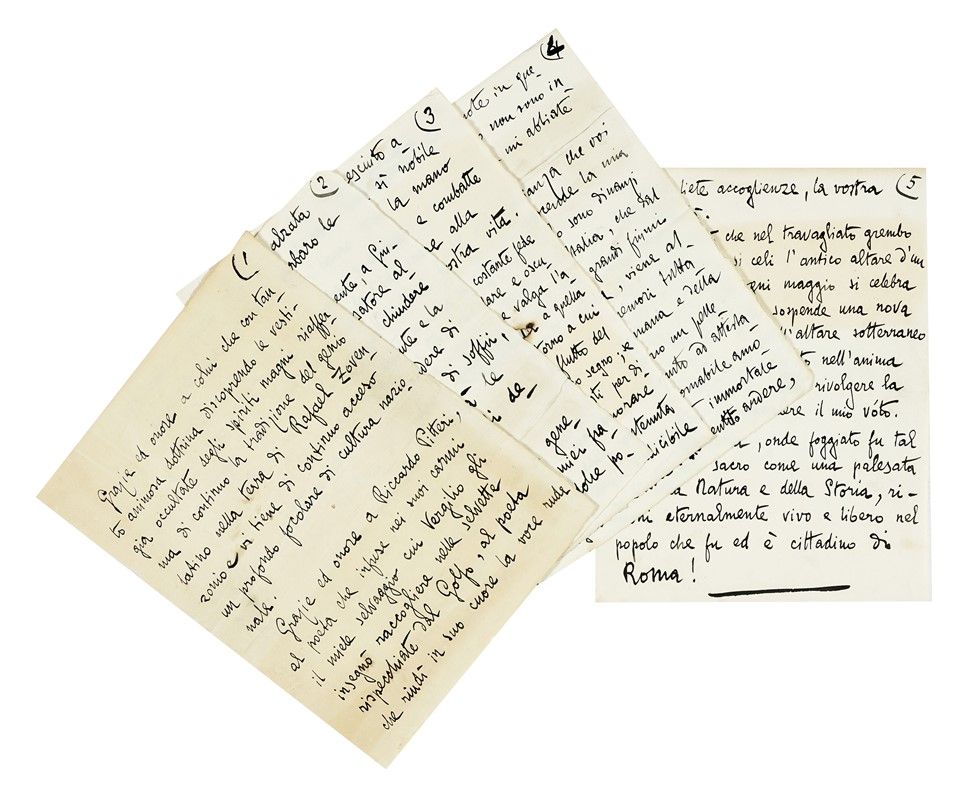 (1
Grazie ed onore a colui che con tan
to animosa dottrina discoprendo le vesti-
gia occultate degli spiriti magni riaffer
ma di continuo la tradizione del genio
latino nella terra di Rafael Zoven
zoni e vi tiene di continuo acceso
un profondo focolare di cultura nazio-
nale!
Grazie ed onore a Riccardo Pitteri,
al poeta che infuse nei suoi carmi
il miele selvaggio cui Vergilio gli
insegnò raccogliere nelle selvette
rispecchiate dal Golfo, al poeta
che rindì in suo cuore la voce rude
(2
obaro le
ente, a giu-
atore al
chiudere
nte e la
dere di
di soffri,
le
de-
gene-
miei fra
che po-
(3
esciuto a
sì nobile
la mano
e combatte
alla
ostra vita.
costante fede
lare e oscu
e valga l'a
a quella
torno a cui
flutto del
segno; se
per di
norare
stenuta
dicibile
(4
ote in que-
non sono in
mi abbiate
anza che voi
cende la mia
sono dinanzi
Italia, che dal
grandi fiumi
, viene al-
emori tutta
mana e della
in pelle
nuto ad attesta
rmabile amo-
immortale
ento andare,
(5
liete accoglienze, la vostra
che nel travagliato grembo
si celi l'antico altare d'un
ogni maggio si celebra
sospende una nova
l'altare sotterraneo
nell'anima
rivolgere la
ere il mio vóto.
, onde foggiato fu tal
sacro come una palesata
Natura e della Storia, ri-
eternalmente vivo e libero nel
popolo che fu ed è cittadino di
Roma!